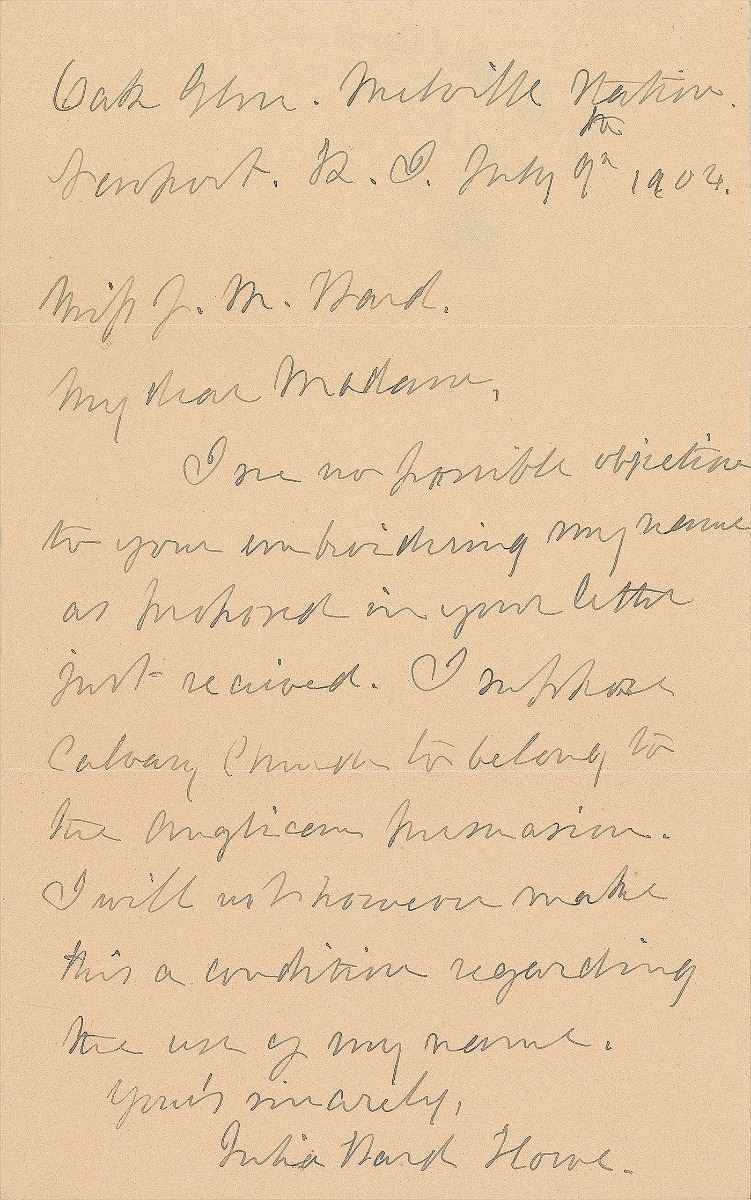 Oak Glen. Melville Station.
Newport. R. I. July 9th 1904.
Miss J. M. Ward.
My dear Madame,
I see no possible objection
to your embroidering my name
as proposed in your letter
just recieved. I suppose
Calvary Church to belong to
the Anglican persuasion.
I will not however make
this a condition regarding
the use of my name.
Your's sincerely,
Julia Ward Howe.